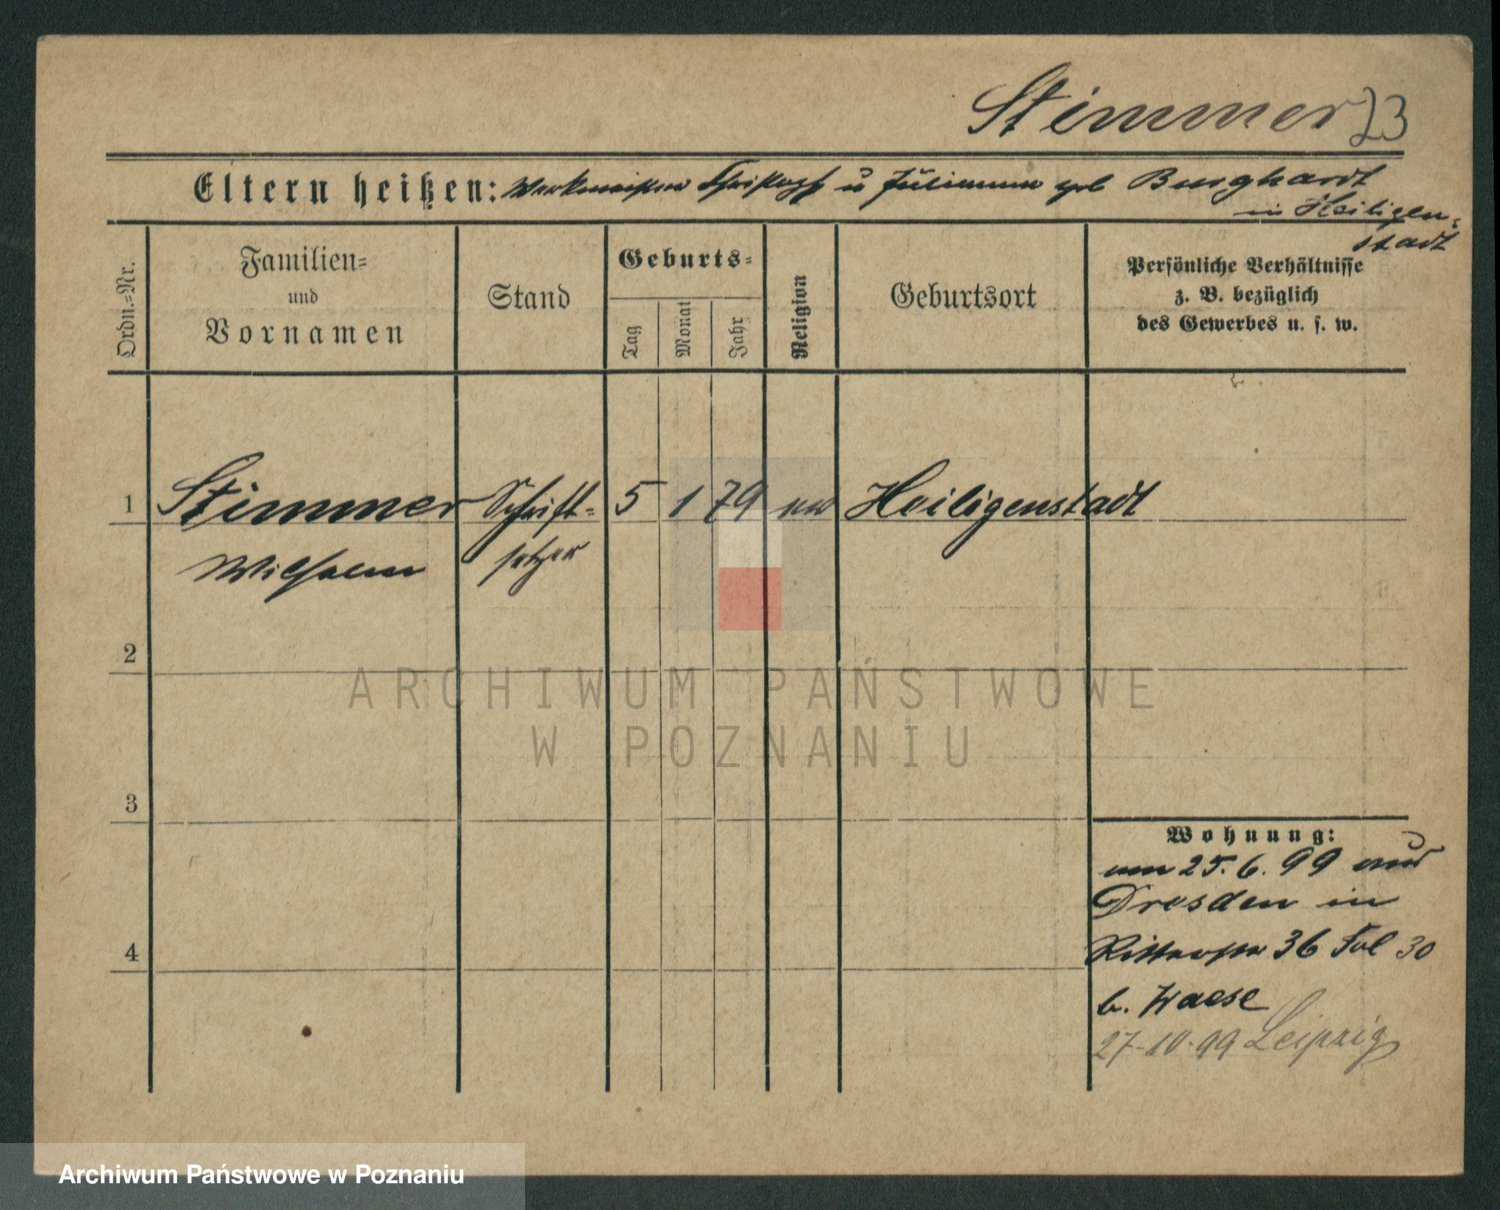 Stimmer 23
Eltern heißen: Werkmeister Christoph u Julianne geb Burghardt
in Heiligen-
stadt
Ordn.-Nr.
Familien-
und
Vornamen
Stand
Geburts-
Tag
Monat
Jahr
Religion
Geburtsort
Persönliche Verhältnisse
z. B. bezüglich
des Gewerbes u. s. w.
1 Stimmer Schrift- 5 1 79 Heiligenstadt
Wilhelm setzer
2
ARCHIWUM PAŃSTWOWE
W POZNANIU
3
Wohnung:
am 25. 6. 99 aus
Dresden in
Ritterstr 36 Fol 30
b. Haese
4
27-10-99 Leipzig
Archiwum Państwowe w Poznaniu